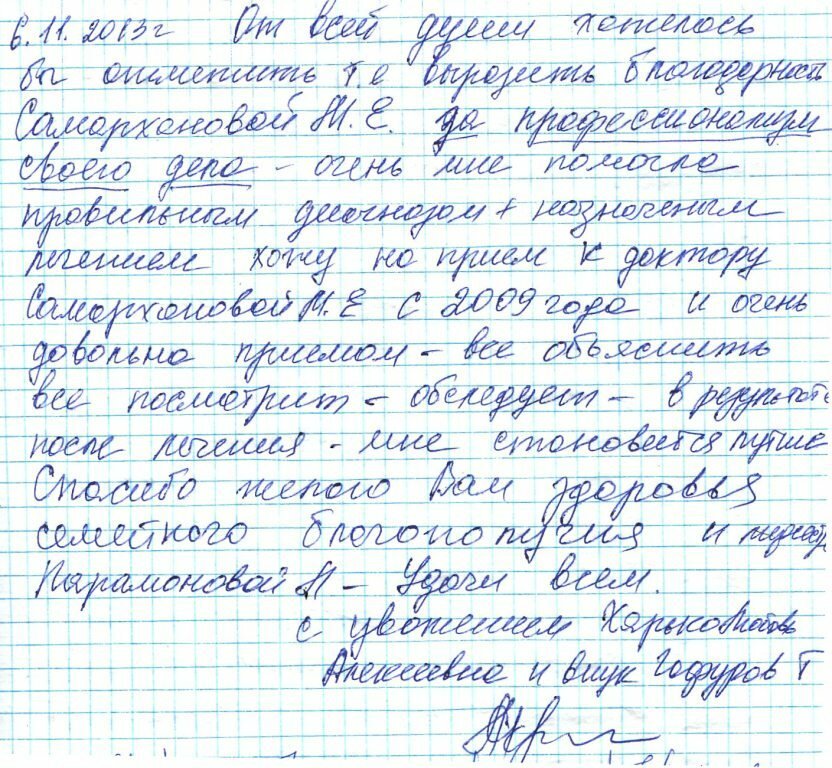 6.11.2013г От всей души хотелось
бы отметить т.е выразить благодарность
Самархановой М.Е. за профессионализм
своего дела - очень мне помогла
правильным диагнозом + назначеным
лечением хожу на прием к доктору
Самархановой М.Е с 2009 года и очень
довольна приемом - все объяснить
все посмотрит - обследует - в результате
после лечения - мне становится лутше
Спасибо желаю Вам здоровья
семейного благополучия и
Парамоновой - Удачи всем.
с уважением Харько
Алексеевна и внук Гафуров Т